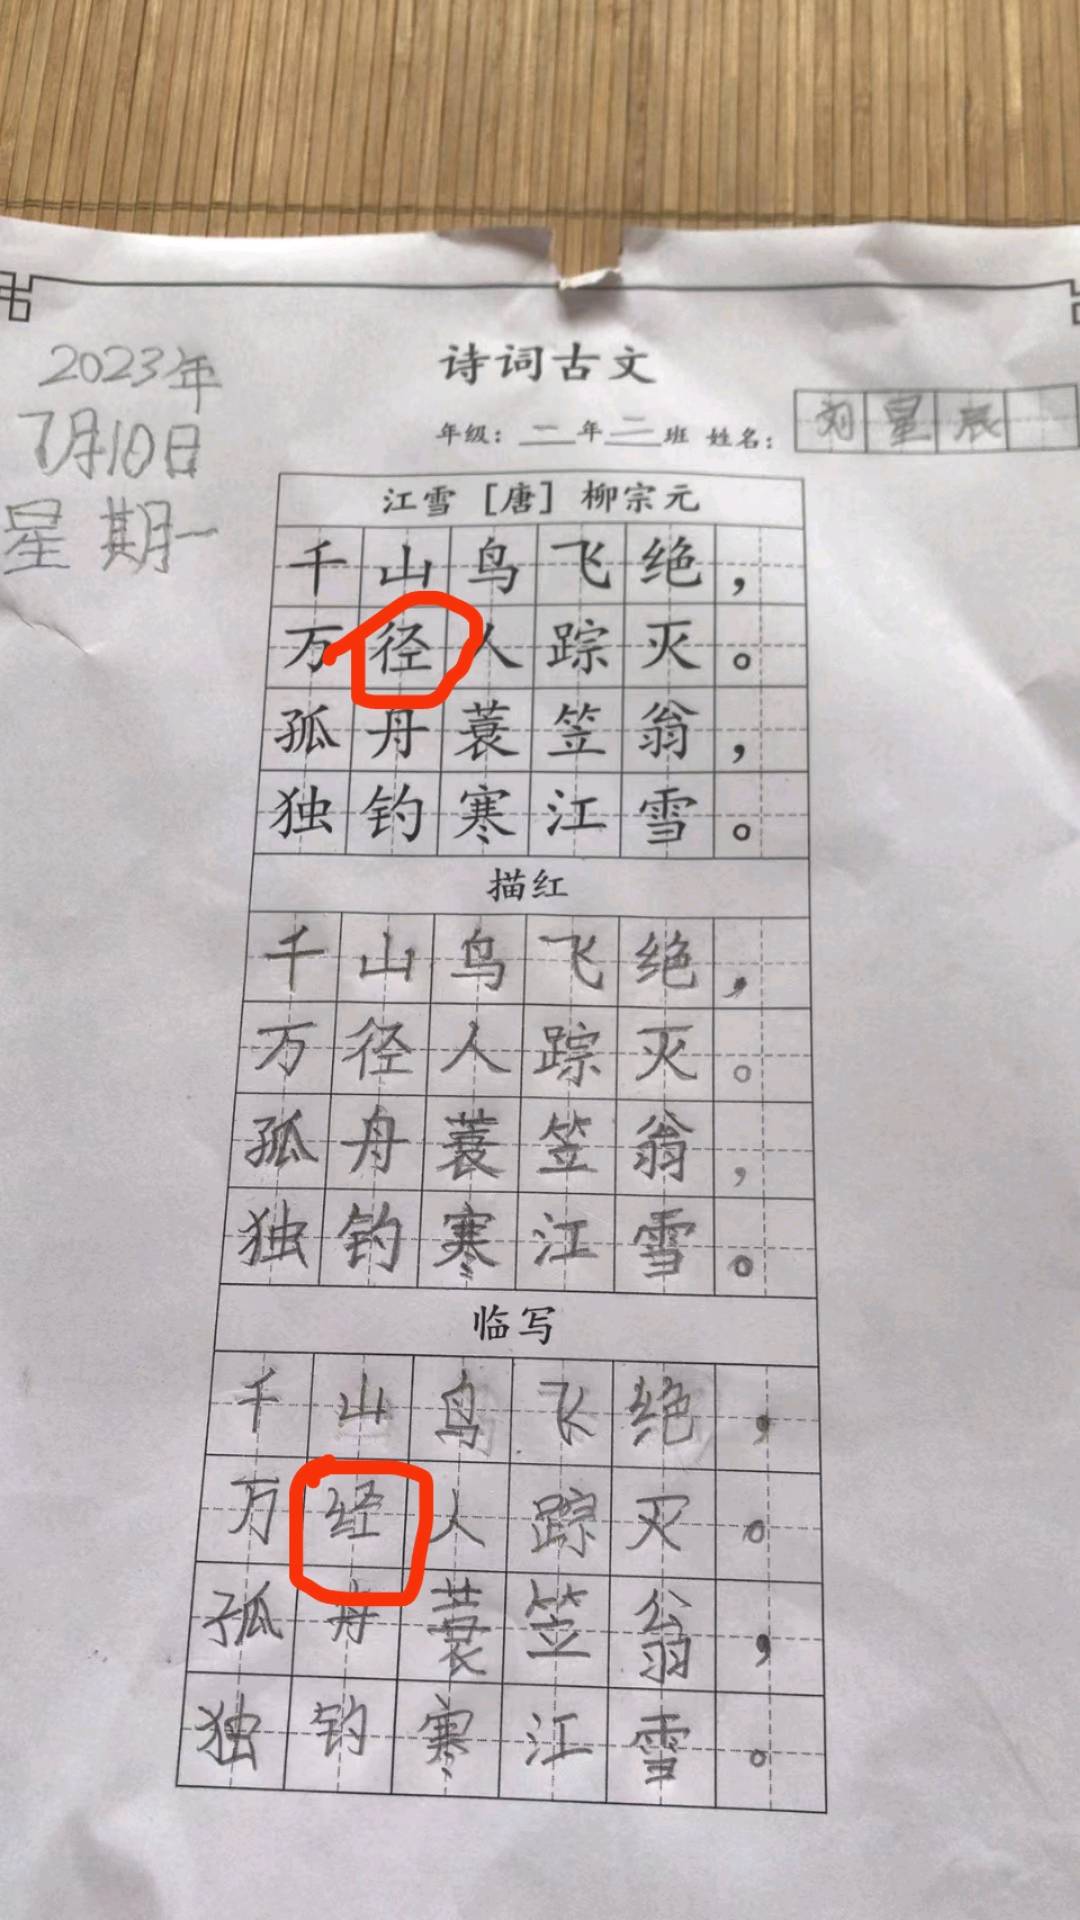 2023年
7月10日
星期一
诗词古文
年级：一年二班 姓名：刘星辰
江雪［唐］柳宗元
千山鸟飞绝，
万径人踪灭。
孤舟蓑笠翁，
独钓寒江雪。
描红
千山鸟飞绝，
万径人踪灭。
孤舟蓑笠翁，
独钓寒江雪。
临写
千山鸟飞绝，
万经人踪灭。
孤舟蓑笠翁，
独钓寒江雪。